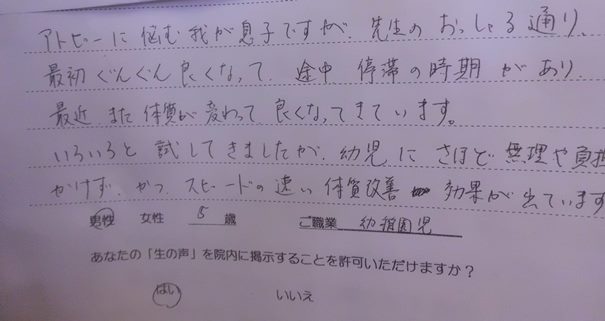 アトピーに悩む我が息子ですが、先生のおっしゃる通り、
最初ぐんぐん良くなって、途中 停滞の時期があり、
最近 また体質が変わって良くなってきています。
いろいろと試してきましたが、幼児にさほど無理や負担
かけず、かつスピードの速い体質改善 効果が出ています
男性 女性 5 歳 ご職業 幼稚園児
あなたの「生の声」を院内に掲示することを許可いただけますか？
はい いいえ